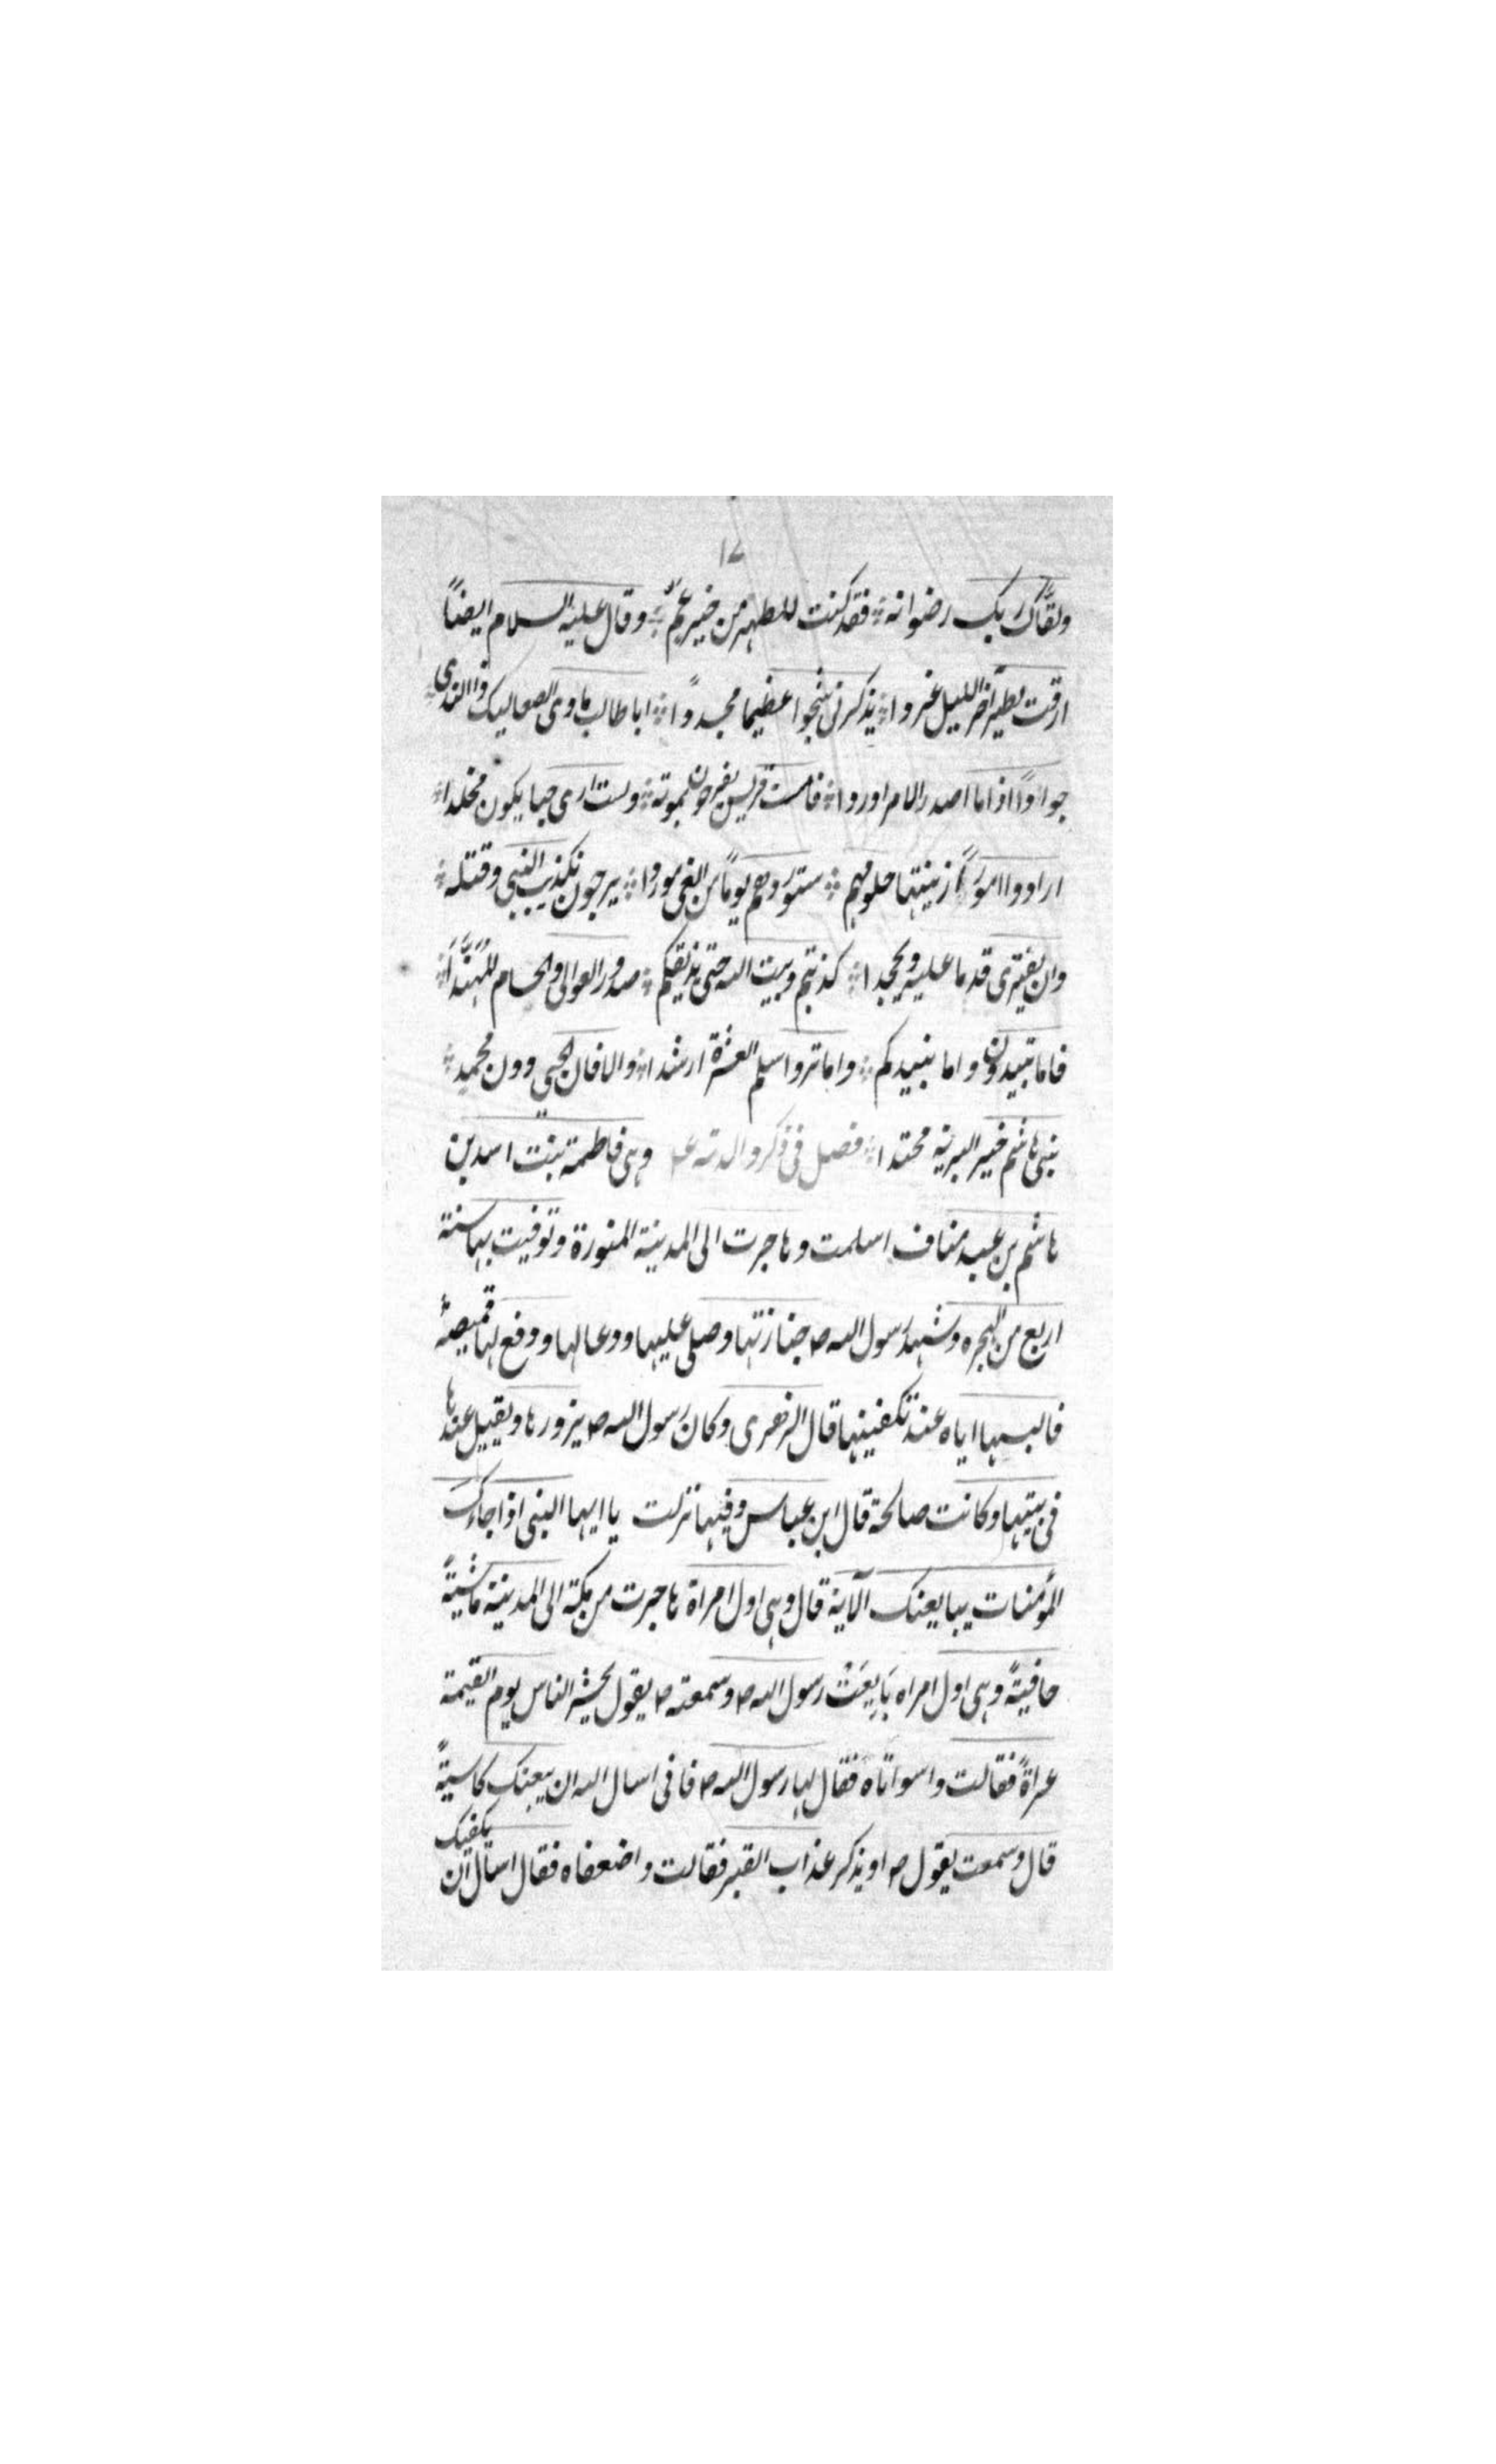 ١٧
ولقّاك ربك رضوانه فقد كنت للطهر من خير عم وقال عليه السلام ايضاً
ارقت لطير آخر الليل غردا يذكرنى شجوا عظيما مجددًا ابا طالب ماوى الصعاليك ذا الندى
جوادًا اذا ما اصدر الامر اوردا فامست قريش يفرحون بموته ولست ارى حيا يكون مخلدا
ارادوا امورًا زينتها حلومهم ستوردهم يومًا من الغى موردا يرجون تكذيب النبى وقتله
وان يفترى قدما عليه ويجحدا كذبتم وبيت الله حتى نذيقكم صدور العوالى والحسام المُهنَّدَا
فاما تبيدون واما نبيدكم واما تروا سلم العشرة ارشدا والا فان الحى دون محمد
بنى هاشم خير البرية محتدا فصل فى ذكر والدته ع م وهى فاطمة بنت اسد بن
هاشم بن عبد مناف اسلمت وهاجرت الى المدينة المنورة وتوفيت بها سنة
اربع من الهجره وشهد رسول الله ص جنازتها وصلى عليها ودعا لها ودفع لها قميصهٗ
فالبسها اياه عند تكفينها قال الزهرى وكان رسول الله ص يزورها ويقيل عندها
فى بيتها وكانت صالحة قال ابن عباس وفيها نزلت يا ايها النبى اذا جاءك
المؤمنات يبايعنك الآية قال وهى اول امراة هاجرت من مكة الى المدينة ماشيةً
حافيةً وهى اول امراه بَايعَتْ رسول الله ص وسمعته ص يقول يحشر الناس يوم القيمة
عراةً فقالت واسواتاه فقال لها رسول الله ص فانى اسال الله ان يبعثك كاسيةً
قال وسمعت يقول ص او يذكر عذاب القبر فقالت واضعفاه فقال اسال ان يكفيك